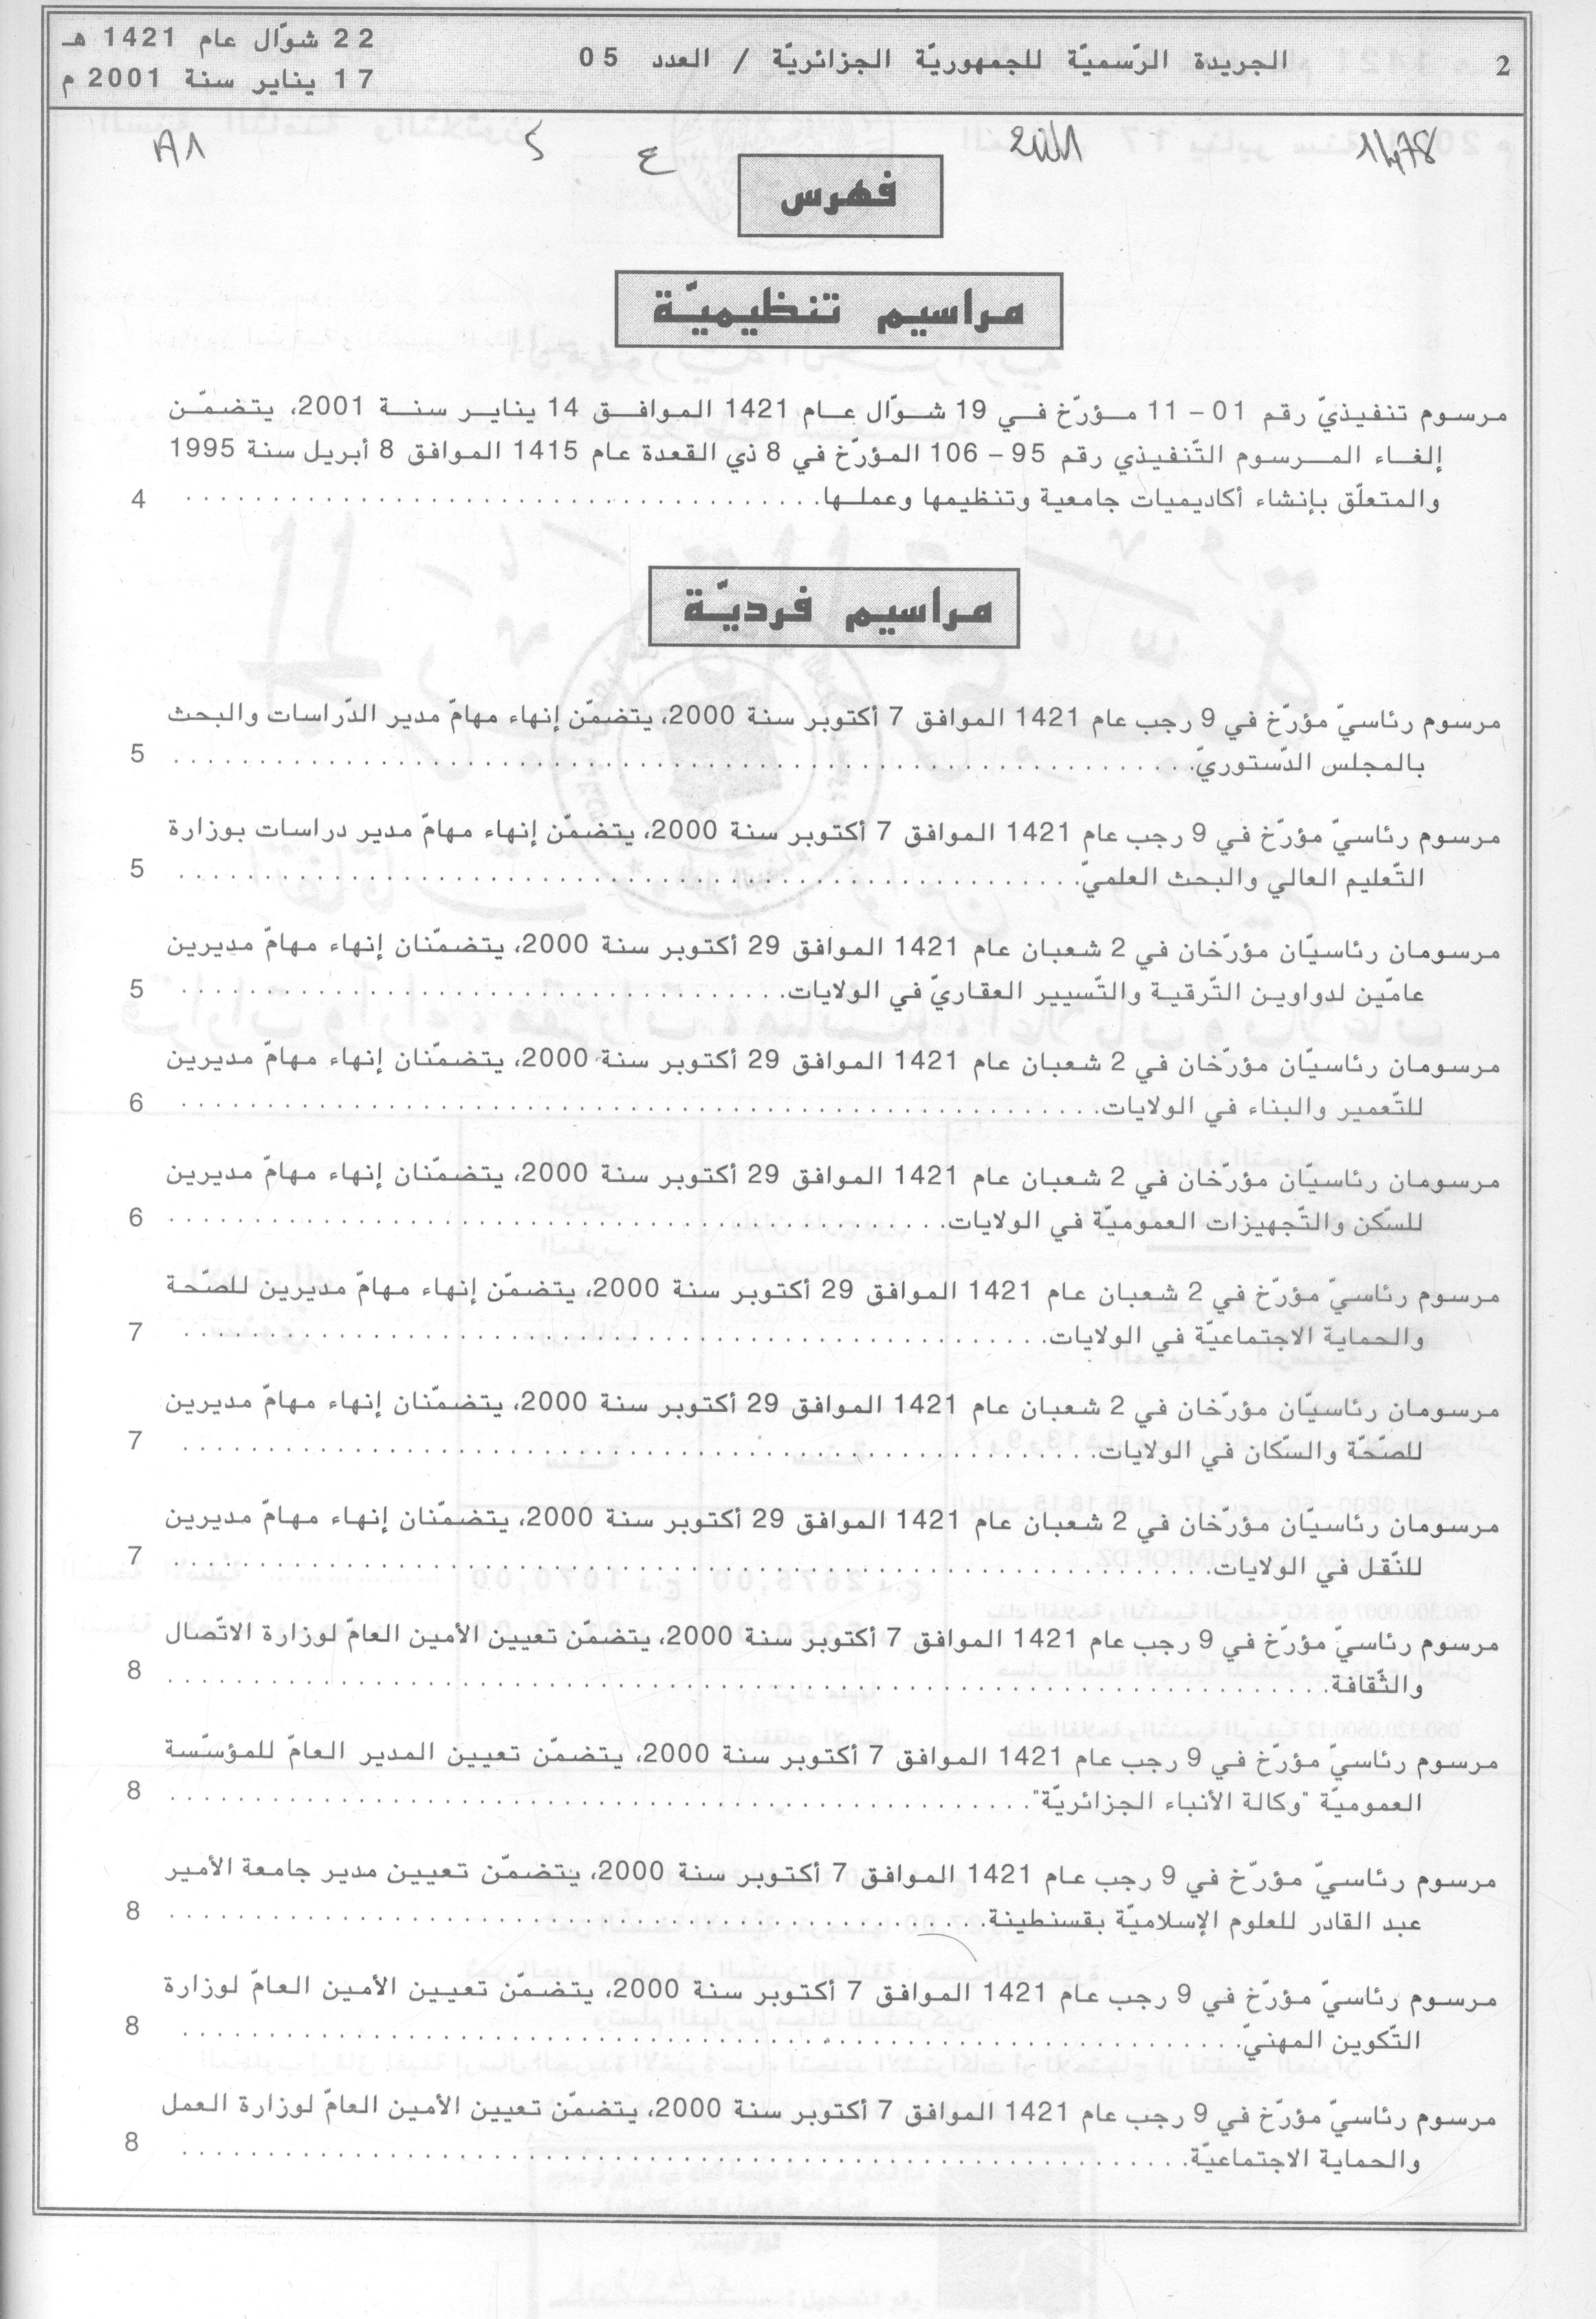 2
الجريدة الرّسميّة للجمهوريّة الجزائريّة / العدد 05
22 شوّال عام 1421 هـ
17 يناير سنة 2001 م
فهرس
مراسيم تنظيميّة
مرسوم تنفيذيّ رقم 01 - 11 مؤرّخ في 19 شوّال عام 1421 الموافق 14 يناير سنة 2001، يتضمّن
إلغاء المرسوم التّنفيذي رقم 95 - 106 المؤرّخ في 8 ذي القعدة عام 1415 الموافق 8 أبريل سنة 1995
والمتعلّق بإنشاء أكاديميات جامعية وتنظيمها وعملها. 4
مراسيم فرديّة
مرسوم رئاسيّ مؤرّخ في 9 رجب عام 1421 الموافق 7 أكتوبر سنة 2000، يتضمّن إنهاء مهامّ مدير الدّراسات والبحث
بالمجلس الدّستوريّ. 5
مرسوم رئاسيّ مؤرّخ في 9 رجب عام 1421 الموافق 7 أكتوبر سنة 2000، يتضمّن إنهاء مهامّ مدير دراسات بوزارة
التّعليم العالي والبحث العلميّ. 5
مرسومان رئاسيّان مؤرّخان في 2 شعبان عام 1421 الموافق 29 أكتوبر سنة 2000، يتضمّنان إنهاء مهامّ مديرين
عامّين لدواوين التّرقية والتّسيير العقاريّ في الولايات. 5
مرسومان رئاسيّان مؤرّخان في 2 شعبان عام 1421 الموافق 29 أكتوبر سنة 2000، يتضمّنان إنهاء مهامّ مديرين
للتّعمير والبناء في الولايات. 6
مرسومان رئاسيّان مؤرّخان في 2 شعبان عام 1421 الموافق 29 أكتوبر سنة 2000، يتضمّنان إنهاء مهامّ مديرين
للسّكن والتّجهيزات العموميّة في الولايات. 6
مرسوم رئاسيّ مؤرّخ في 2 شعبان عام 1421 الموافق 29 أكتوبر سنة 2000، يتضمّن إنهاء مهامّ مديرين للصّحة
والحماية الاجتماعيّة في الولايات. 7
مرسومان رئاسيّان مؤرّخان في 2 شعبان عام 1421 الموافق 29 أكتوبر سنة 2000، يتضمّنان إنهاء مهامّ مديرين
للصّحّة والسّكان في الولايات. 7
مرسومان رئاسيّان مؤرّخان في 2 شعبان عام 1421 الموافق 29 أكتوبر سنة 2000، يتضمّنان إنهاء مهامّ مديرين
للنّقل في الولايات. 7
مرسوم رئاسيّ مؤرّخ في 9 رجب عام 1421 الموافق 7 أكتوبر سنة 2000، يتضمّن تعيين الأمين العامّ لوزارة الاتّصال
والثّقافة. 8
مرسوم رئاسيّ مؤرّخ في 9 رجب عام 1421 الموافق 7 أكتوبر سنة 2000، يتضمّن تعيين المدير العامّ للمؤسّسة
العموميّة "وكالة الأنباء الجزائريّة". 8
مرسوم رئاسيّ مؤرّخ في 9 رجب عام 1421 الموافق 7 أكتوبر سنة 2000، يتضمّن تعيين مدير جامعة الأمير
عبد القادر للعلوم الإسلاميّة بقسنطينة. 8
مرسوم رئاسيّ مؤرّخ في 9 رجب عام 1421 الموافق 7 أكتوبر سنة 2000، يتضمّن تعيين الأمين العامّ لوزارة
التّكوين المهنيّ. 8
مرسوم رئاسيّ مؤرّخ في 9 رجب عام 1421 الموافق 7 أكتوبر سنة 2000، يتضمّن تعيين الأمين العامّ لوزارة العمل
والحماية الاجتماعيّة. 8